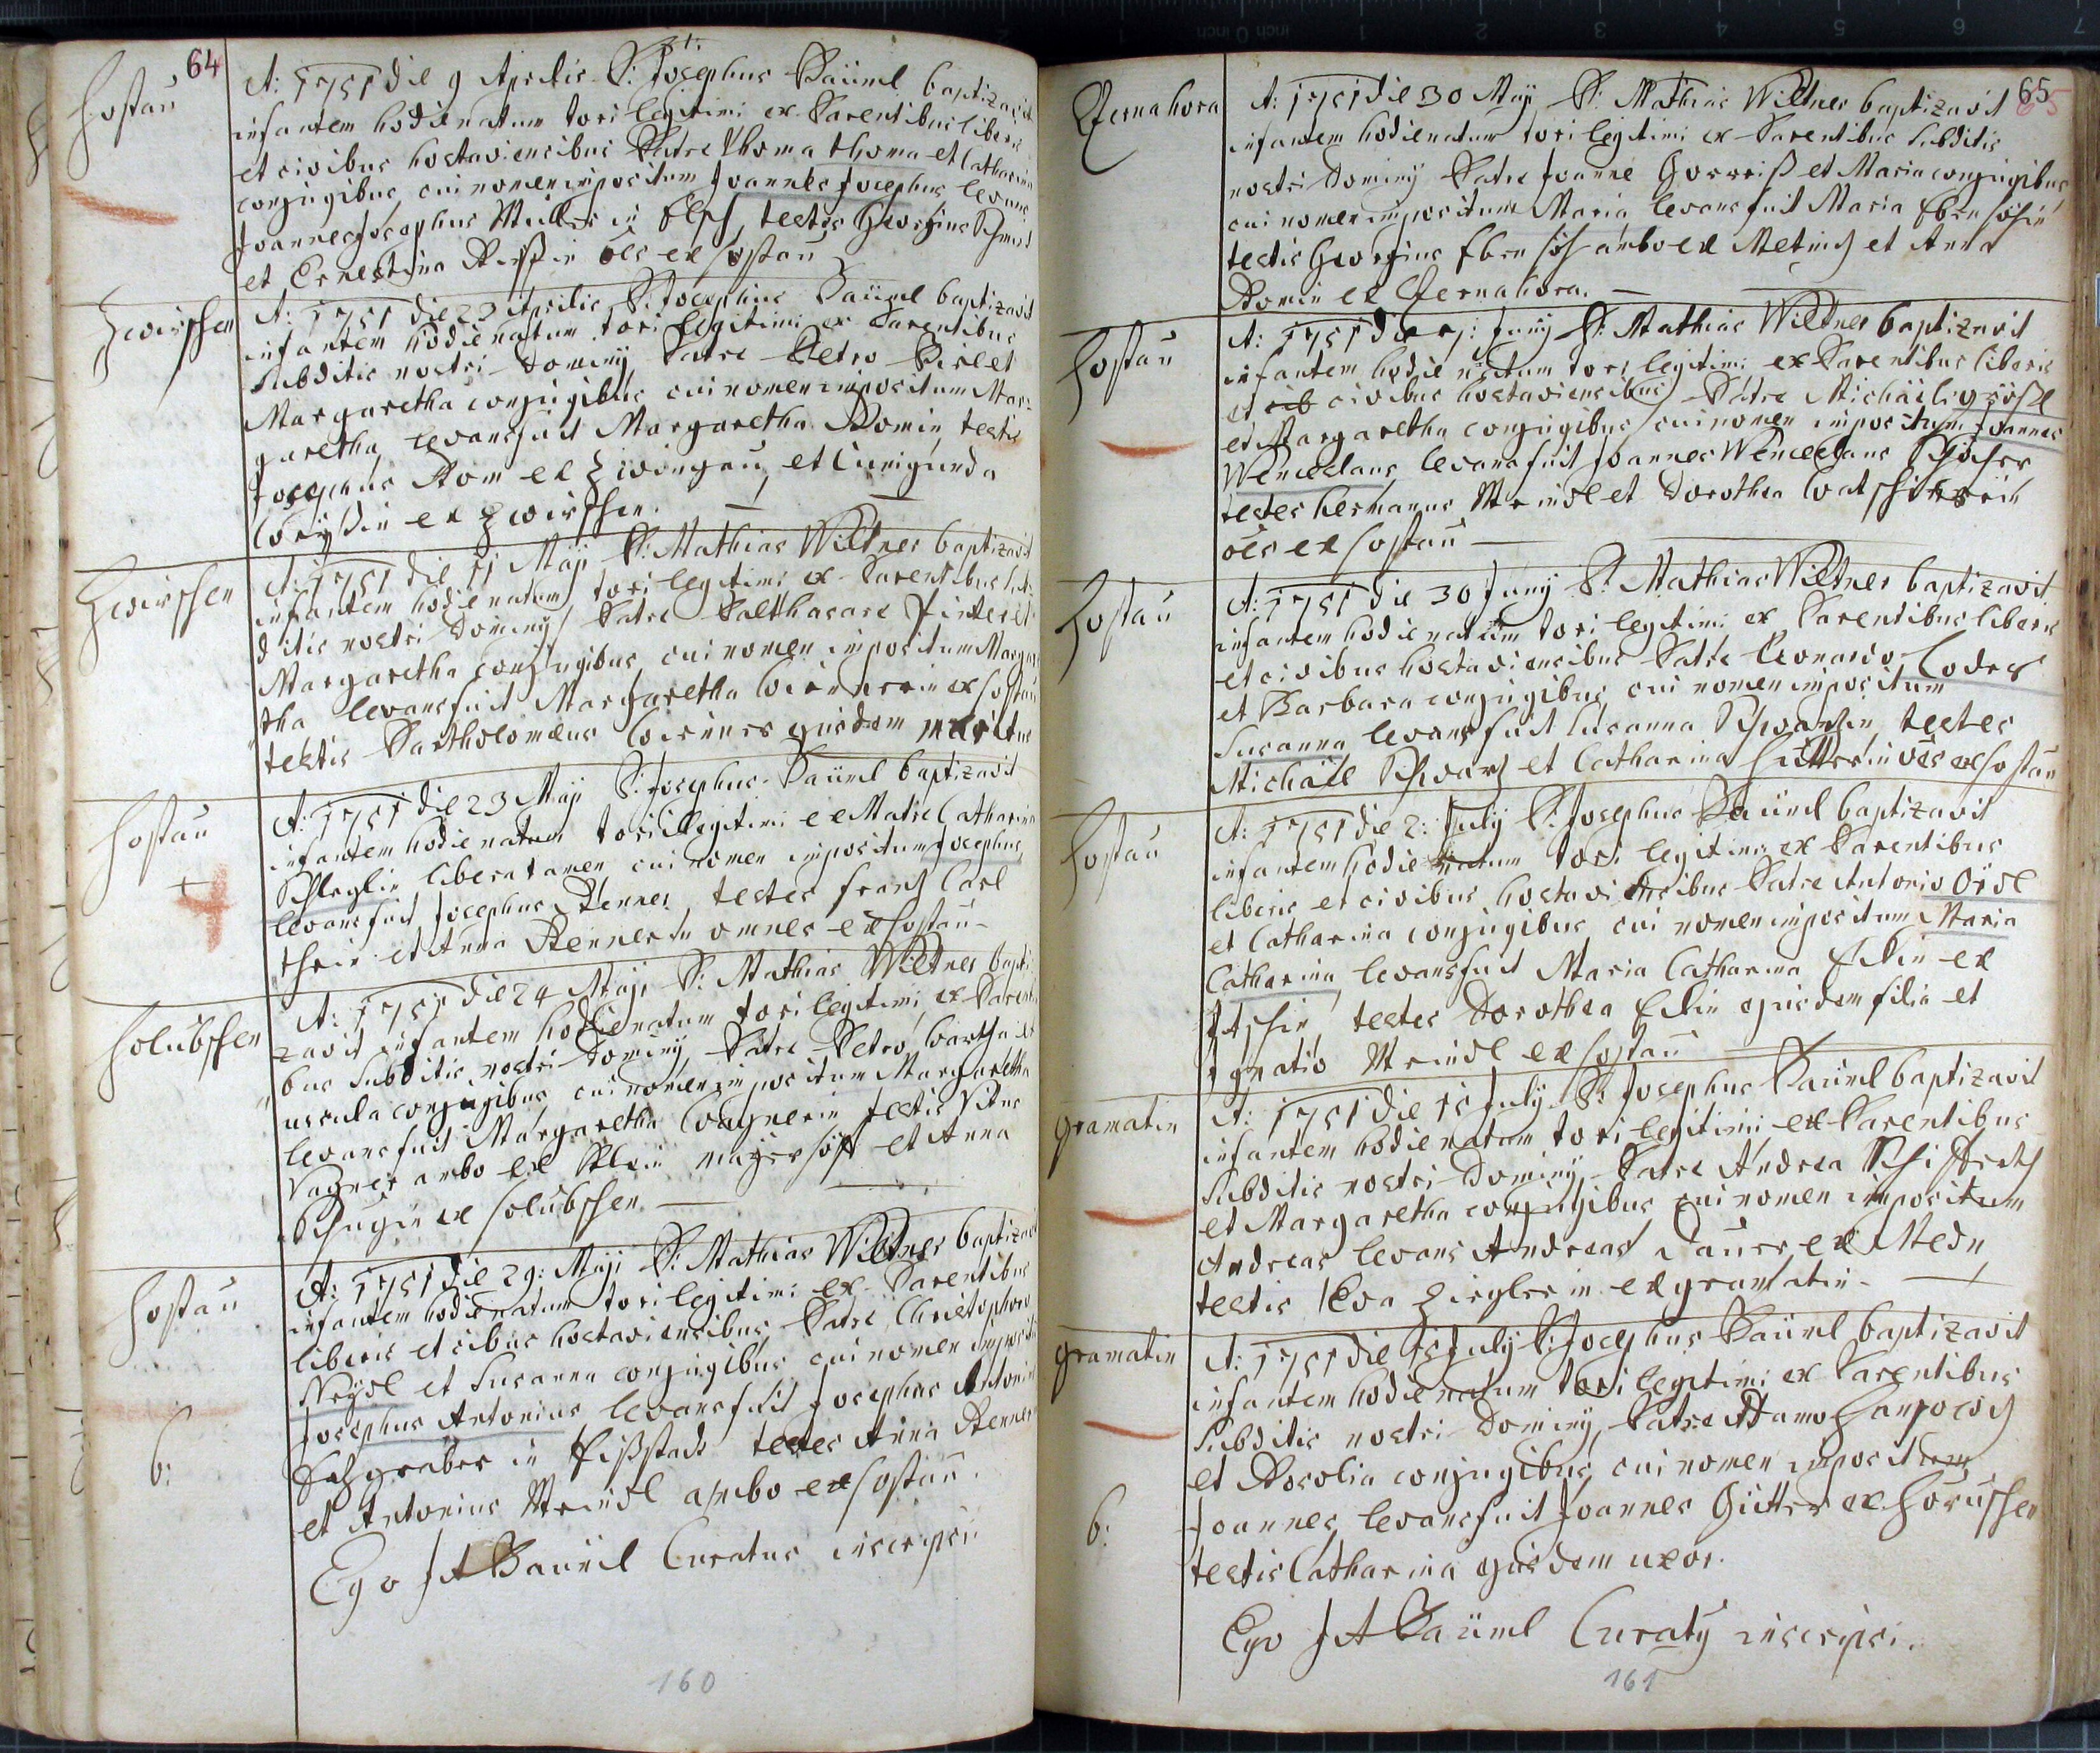 64
51.
Hostau
A: 1751 die 9 Aprilis P: Josephus Bäüml baptizavit
infantem hodie natum tori legitimi ex Parentibus liberis
et civibus hostaviensibus Patre Thoma Thoma et Catharina
conjugibus, cui nomen impositum Joannes Josephus, levans
Joannes Josephus Müller in Elsch, testes Georgius Schmid
et Ernestina oes ex Hostau
Zwirschen
A: 1751 die 23 Aprilis P: Josephus Bäüml baptizavit
infantem hodie natum tori legitimi ex Parentibus
Subditis nostri Dominij Patre Petro et
Margaretha conjugibus cui nomen impositum Mar=
garetha, levans fuit Margaretha Romin, testis
Josephus Rom ex Zwingau, et Cunigunda
ex Zwirschen.
Zwirschen
A: 1751 die 11 Maji P: Mathias Wildner baptizavit
infantem hodie natum tori legitimi ex Parentibus sub=
ditis nostri Dominij Patre Balthasare Pinter et
Margaretha conjugibus, cui nomen impositum Marga=
tha levans fuit Margaretha ex Hostau
testis Bartholomeus ejusdem maritus
Hostau
A: 1751 die 23 Maji P: Josephus Bäüml baptizavit
infantem hodie natum tori illegitimi ex Matre Catharina
Schleglin libera tamen, cui nomen impositum Josephus,
levans fuit Josephus Renner, testes Frantz Carl
et Anna Rennerin omnes ex Hostau
Holubschen
A: 1751 die 24 Maji P: Mathias Wildner bapti=
zavit infantem hodie natum tori legitimi, ex Parenti=
bus Subditis nostri Dominij, Patre Petro Bartha et
ursula conjugibus, cui nomen impositum Margaretha
levans fuit Margaretha Wagnerin testis Vitus
Vagner ambo ex Klein mayerhöff et Anna
ex Holubschen
Hostau
A: 1751 die 29: Maji P: Mathias Wildner baptizavit
infantem hodie natum tori legitimi ex Parentibus
liberis et cibus hostaviensibus, Patre Christophoro
et Susanna conjugibus cui nomen impositum
Josephus Antonius, levans fuit Josephus Antonius
in testes Anna Renner
et Antonius Meindl ambo ex Hostau.
6:
Ego J A Bäüml Curatus inscripsi
160
65
Czernahora
A: 1751 die 30 Maji P: Mathias Wildner baptizavit
infantem hodie natum tori legitimi ex Parentibus Subditis
nostri Dominij Patre Joanne et Maria conjugibus
cui nomen impositum Maria, levans fuit Maria Ebenhöhin
testis Georgius Ebenhöh ambo ex Metzing et Anna
Romin ex Czernahora.
Hostau
A: 1751 die Junij P: Mathias Wildner baptizavit
infantem hodie natum tori legitimi ex Parentibus liberis
et cib civibus hostaviensibus, Patre Michäile
et Margaretha conjugibus, cui nomen impositum Joannes
Wenceslaus, levans fuit Joannes Wenceslaus
testes hermanus Meindl et Dorothea
oes ex Hostau
Hostau
A: 1751 die 30 Junij P: Mathias Wildner baptizavit
infantem hodie natum tori legitimi ex Parentibus liberis
et civibus hostaviensibus Patre Leonardo Lodes
et Barbara conjugibus, cui nomen impositum
Susanna levans fuit Susanna Schwartzin testes
Michäel Schwartz et Catharina Hütterin oes ex Hostau
Hostau
A: 1751 die 2: July P: Josephus Bäüml baptizavit
infantem hodie natum tori legitimi ex Parentibus
liberis et civibus hostaviensibus Patre Antonio
et Catharina conjugibus, cui nomen impositum Maria
Catharina, levans fuit Maria Catharina ex
testes Dorothea ejusdem filia et
Ignatio Meindl ex Hostau
gramatin
A: 1751 die 15 July P: Josephus Bäüml baptizavit
infantem hodie natum tori legitimi ex Parentibus
Subditis nostri Dominij, Patre Andrea
et Margaretha conjugibus cui nomen impositum
Andreas levans Andreas ex Medn,
testis Eva Zieglerin ex gramatin.
gramatin
A: 1751 die 15 July P: Josephus Bäüml baptizavit
infantem hodie natum tori legitimi ex Parentibus
Subditis nostri Dominij, Patre Adamo
et Rosolia conjugibus, cui nomen impositum
Joannes, levans fuit Joannes Gütter ex Horuschen
testis Catharina ejusdem uxor.
6:
Ego J A Bäüml Curaty inscripsi.
161